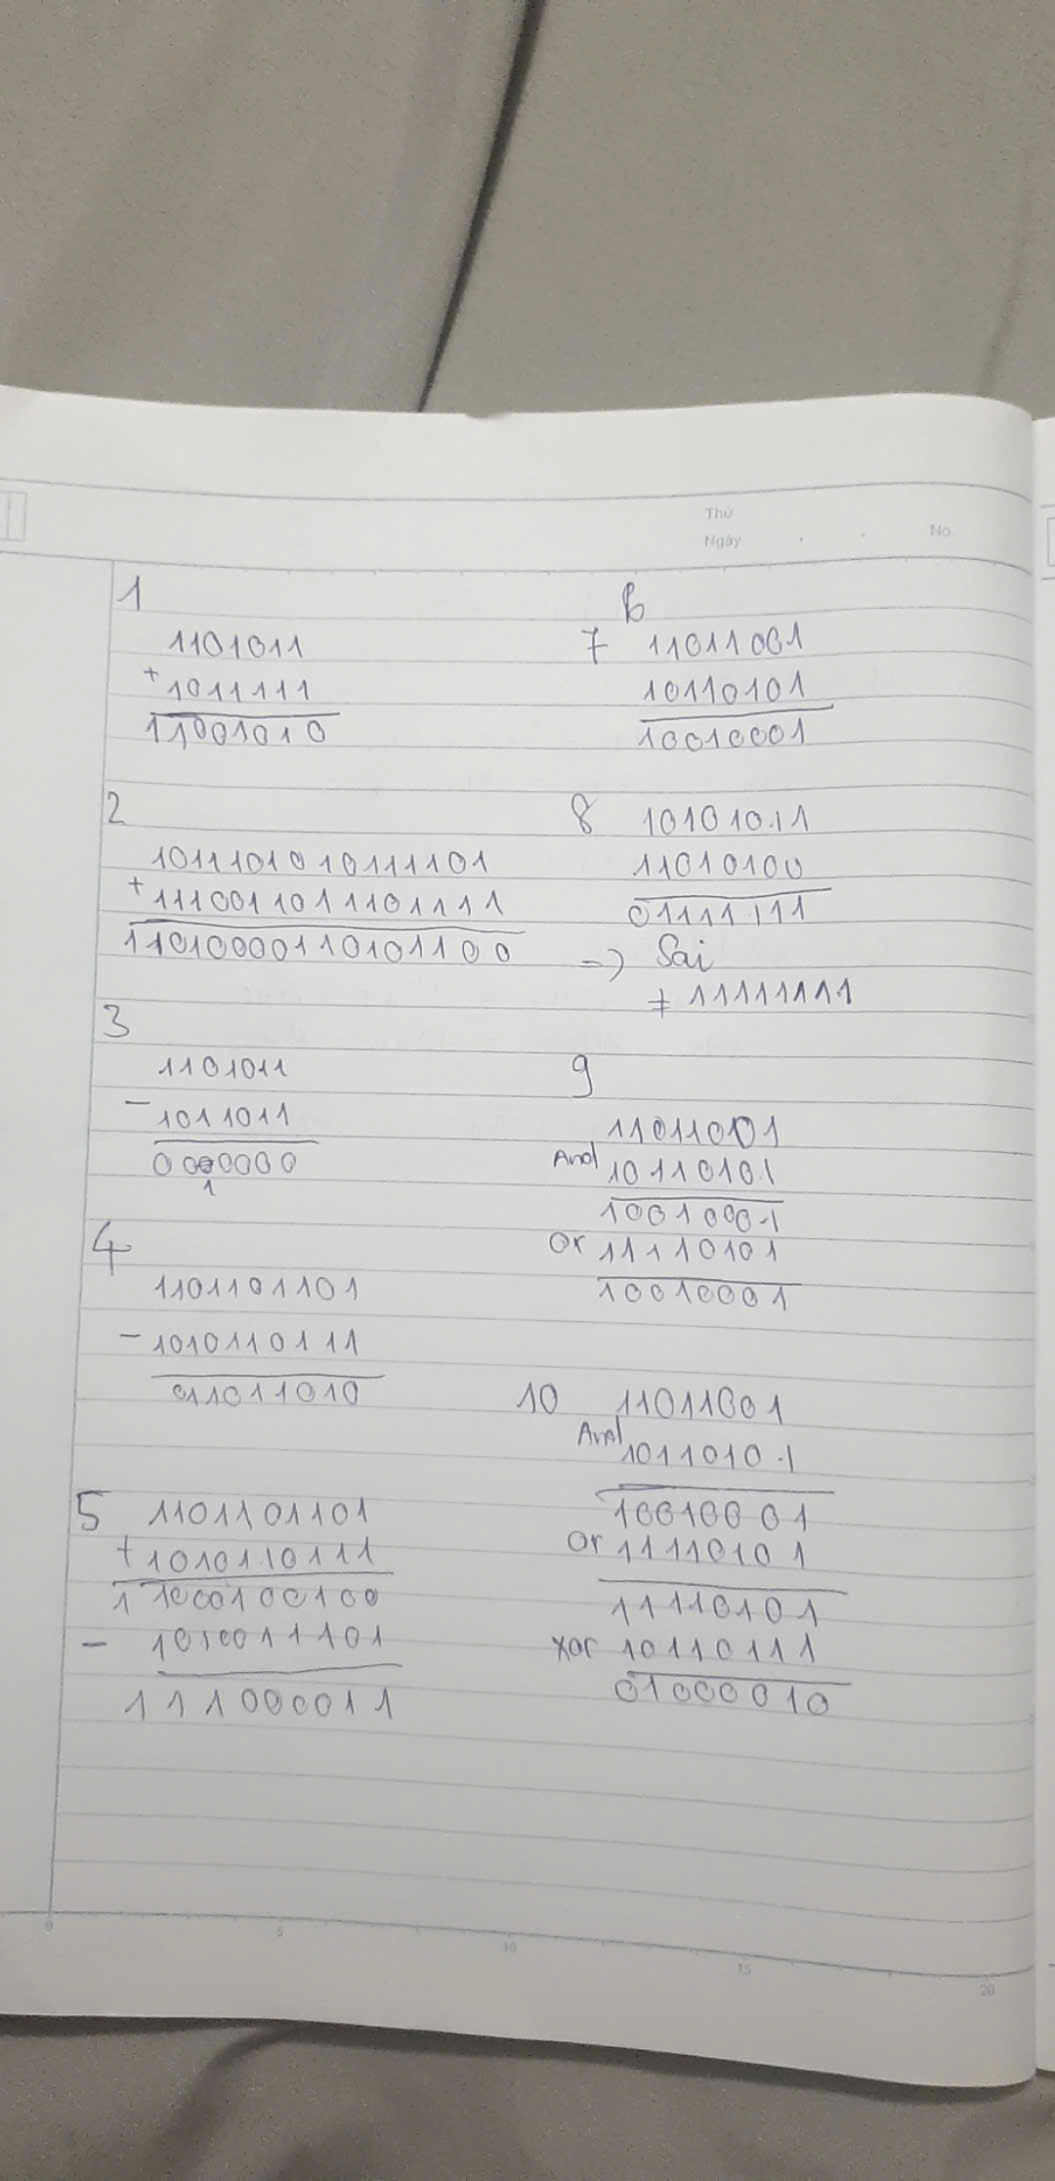 Thứ
Ngày
No.
1
1101011
+ 1011111
11001010
2
1011101010111101
+ 1110011011101111
11010000110101100
3
1101011
- 1011011
0000000
1
4
1101101101
- 1010110111
011011010
5 1101101101
+ 1010110111
1 1000100100
- 1010011101
111000011
B
7 11011001
10110101
10010001
8 10101011
11010100
01111111
=> Sai
≠ 11111111
9
11011001
And 10110101
10010001
Or 11110101
10010001
10 11011001
And 10110101
10010001
Or 11110101
11110101
Xor 10110111
01000010
0 5 10 15 20